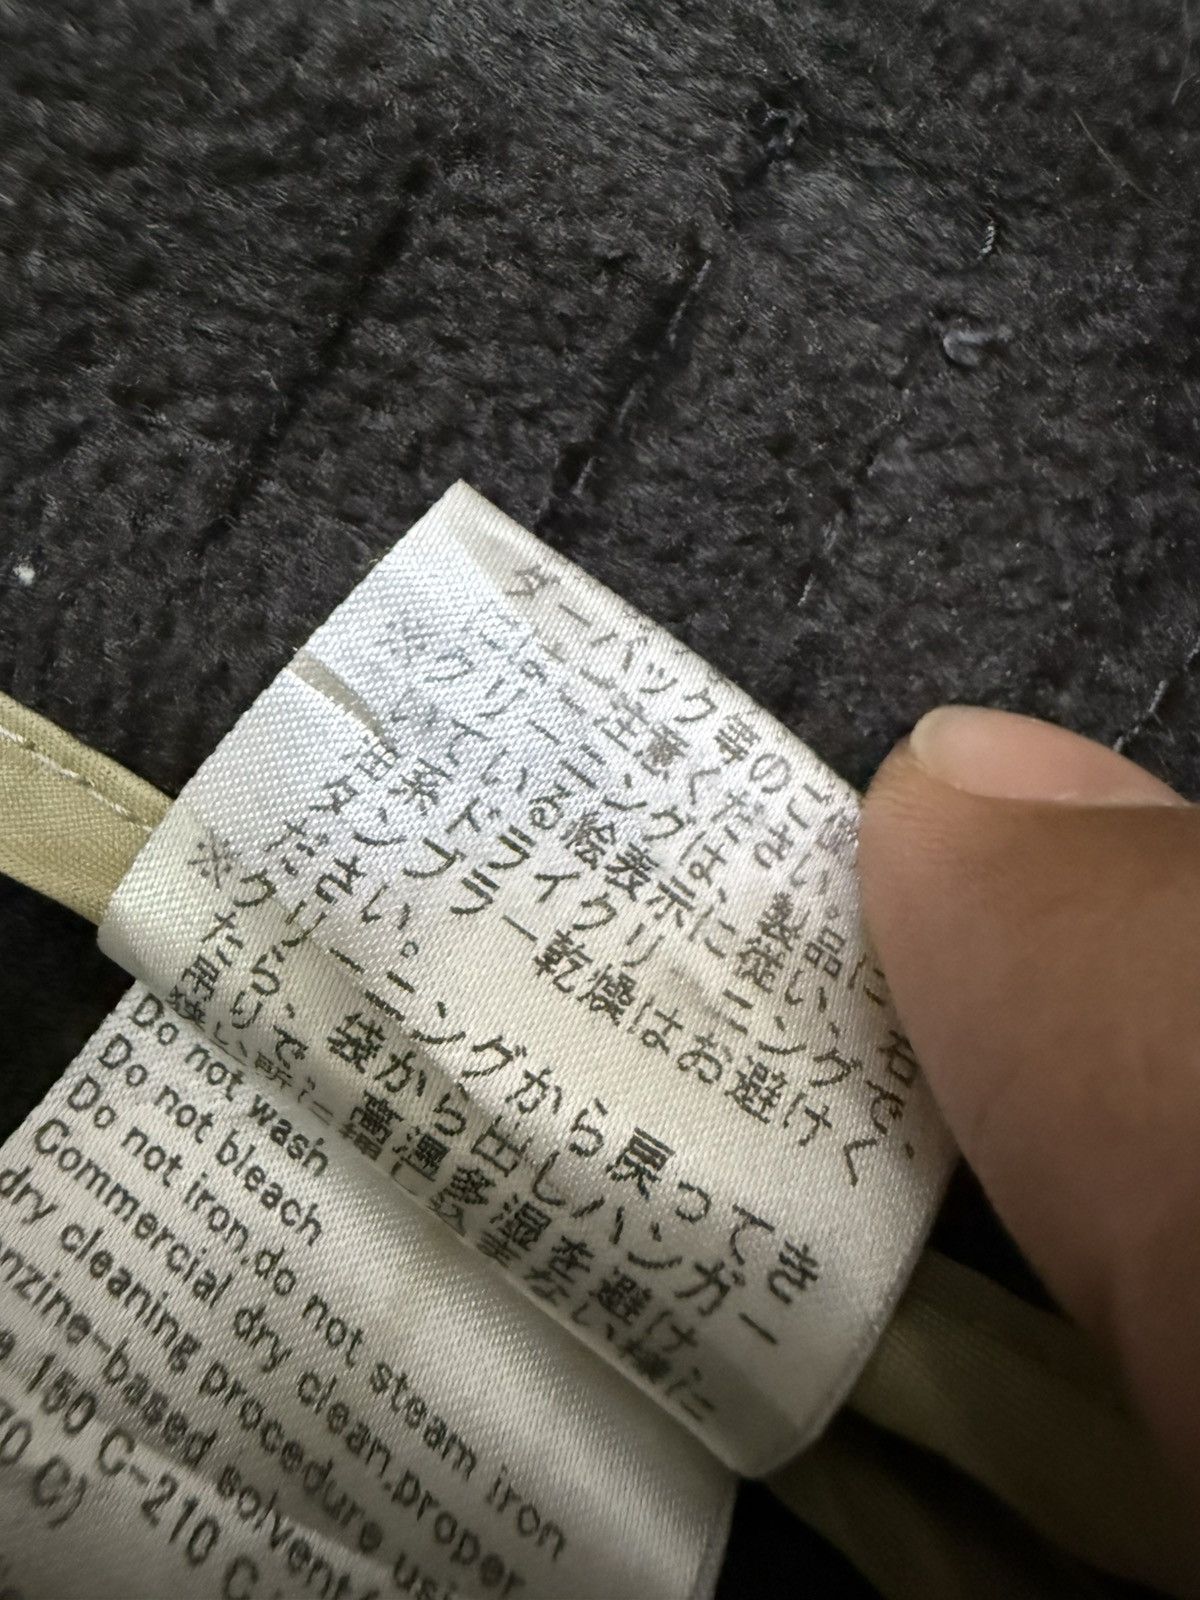 ダーバック等のご
ご注意ください。
※クリーニングは、製品に
ついている絵表示に従い、石
油系ドライクリーニングで、
タンブラー乾燥はお避けく
ださい。
※クリーニングから戻ってき
たら、袋から出しハンガー
高温多湿を避け、
Do not wash
Do not bleach
Do not iron.do not steam iron
Commercial dry clean.proper
dry cleaning procedure
-based solvent
150 C-210 C
0 C)